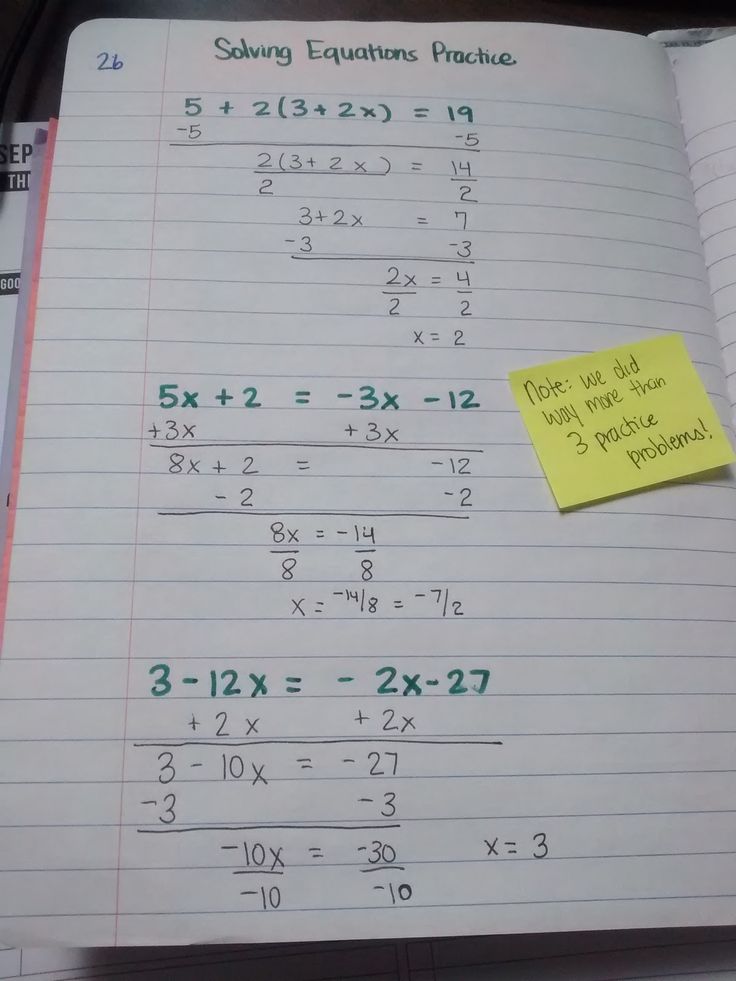 26
Solving Equations Practice
5 + 2(3 + 2x) = 19
-5 -5
2(3 + 2x) = 14
2 2
3 + 2x = 7
-3 -3
2x = 4
2 2
x = 2
5x + 2 = -3x - 12
+3x + 3x
8x + 2 = -12
- 2 -2
8x = -14
8 8
x = -14/8 = -7/2
Note: we did
way more than
3 practice
problems!
3 - 12x = - 2x - 27
+ 2x + 2x
3 - 10x = - 27
-3 - 3
-10x = -30
-10 -10
x = 3
SEP